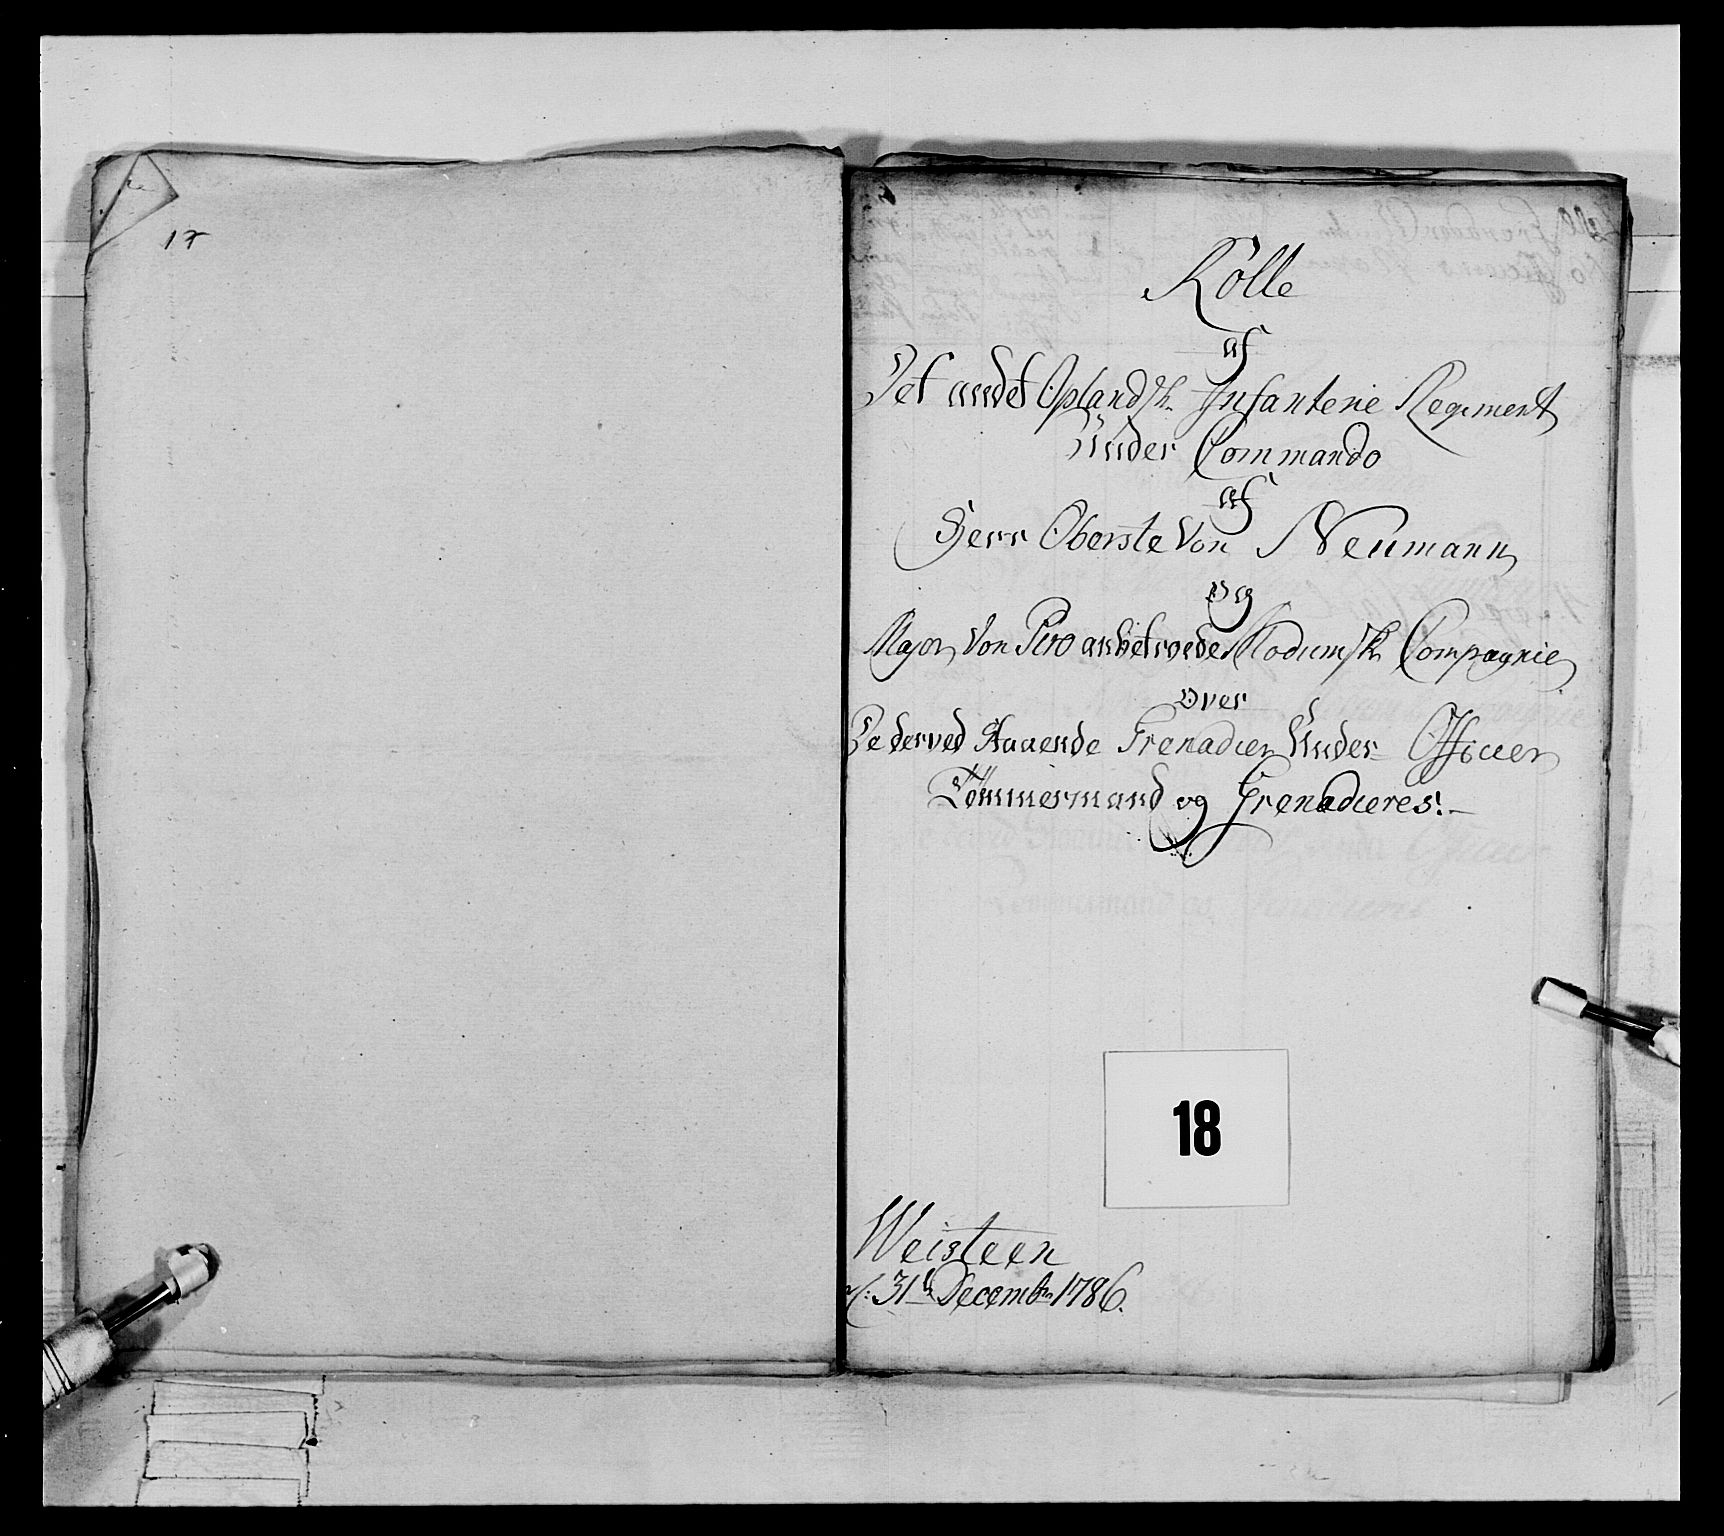 17
Rolle
af
Det andet Oplandsk Infanterie Regiment
Under Commando
af
Herr Oberste Von Neumann
og
Major Von Pivo anbetroede Modumsk Compagnie
over
De derved staaende Grenadier Under Officier
Tömmermand og Grenadieres:
18
Weisteen
d: 31te Decembr 1786.